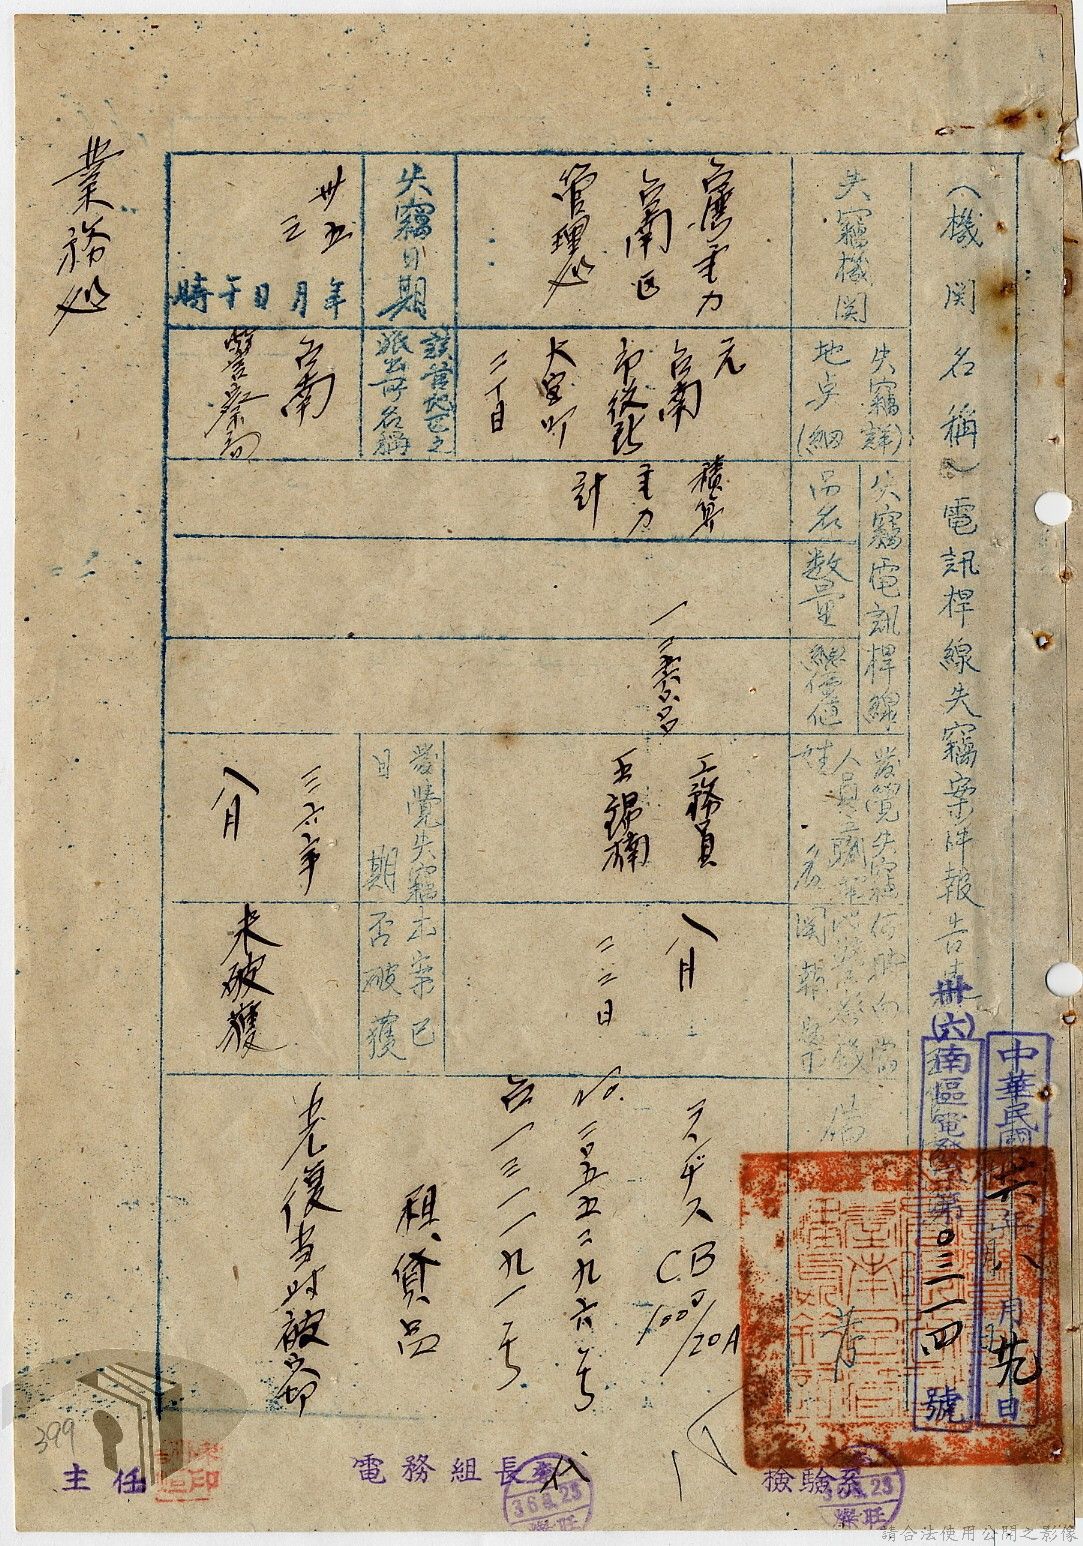 (機関名稱)電訊桿線失竊案件報告表
中華民國卅六年八月廿九日
卅(六)南區電發第〇三一四號
失竊機関
台灣電力
台南區
管理処
失竊日期
卅五
三
年月日午時
失竊詳
地点(細)
元
台南
市役所
大宮町
二丁目
該管地区之
派出所名稱
台南
警察局
失竊電訊桿線
品名
數量
總價值
積算
電力
計
一
發覺失竊
人員之職
姓名
工務員
王錫楠
發覺失竊
日期
三六年
八月
何時向當
地警察機
関報案
八月
二二日
本案已
否破獲
未破獲
備考
ランヂス CB
100V/20A
No.二〇五五二九六号
台一三一一九一号
租貸品
光復当时被竊
業務処
檢驗系
電務組長
代
主任
36.8.23
36.8.23
399
請合法使用公開之影像